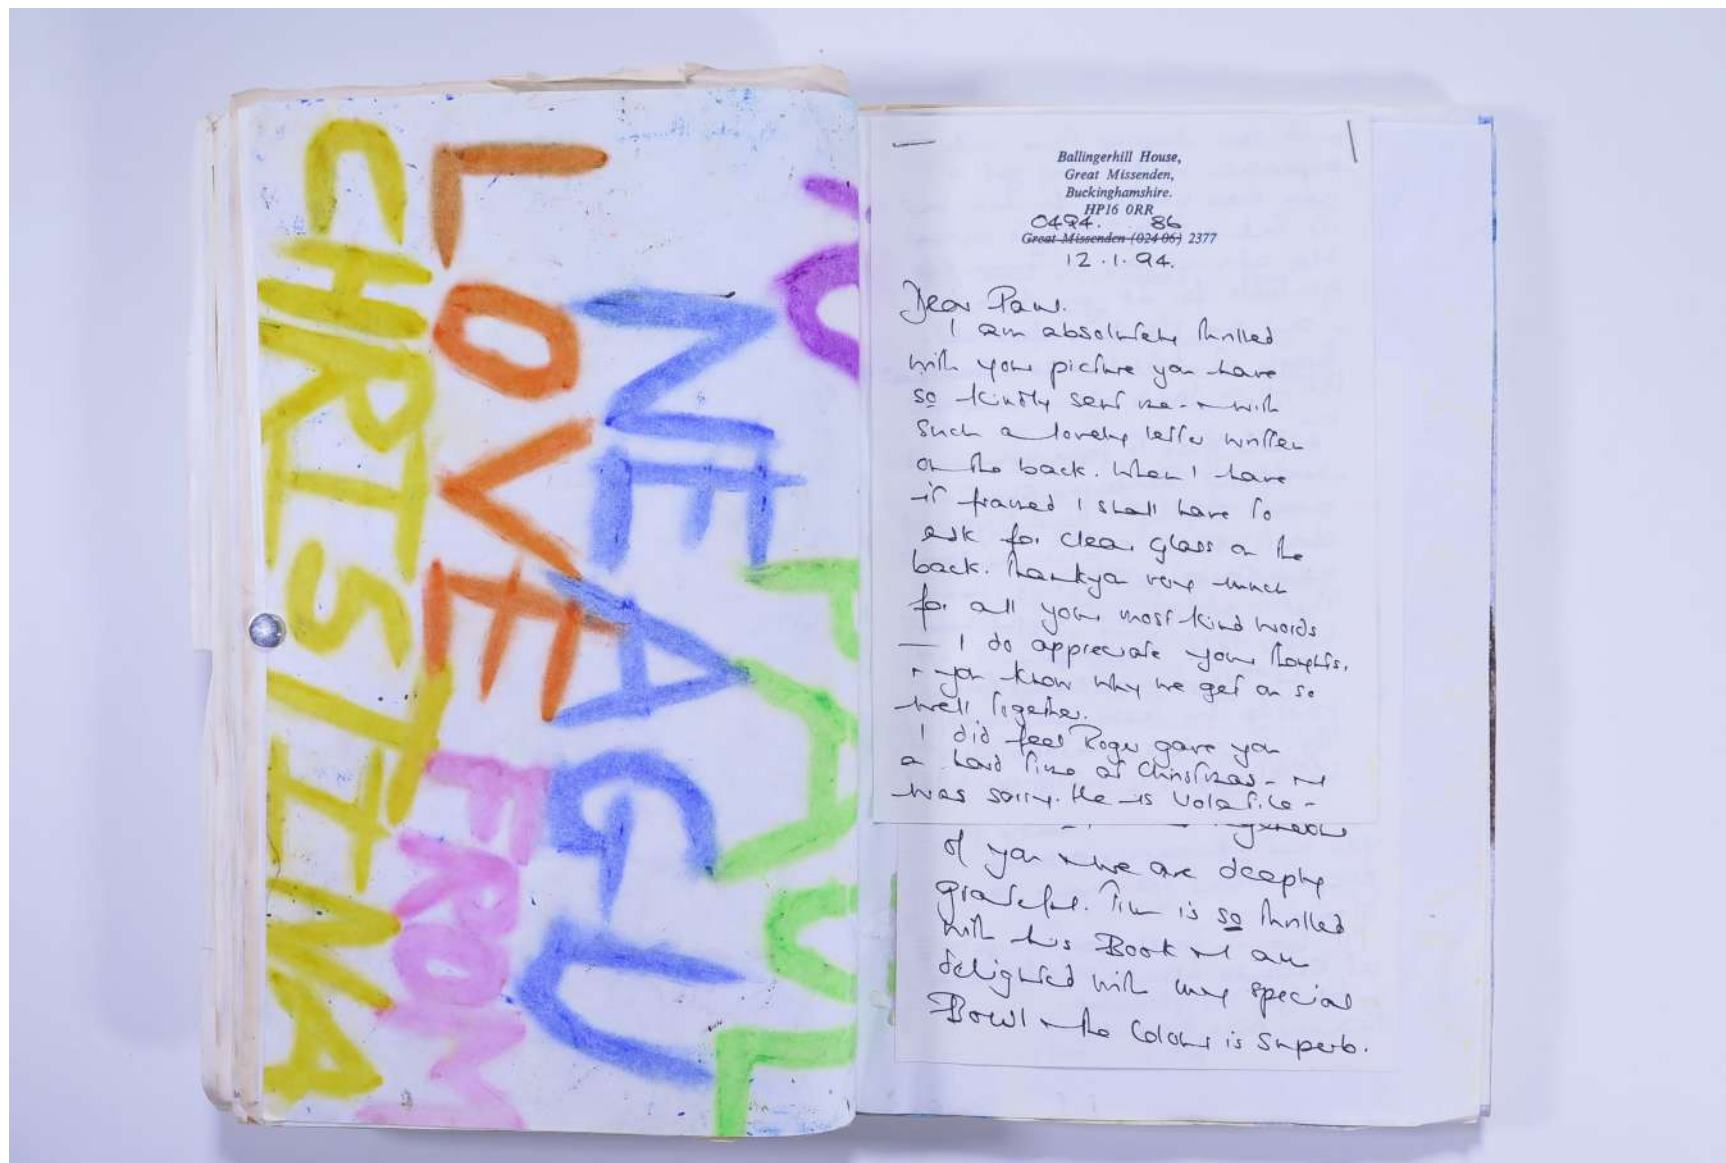 CHRISTINA
LOVE
FROM
NEAGU
PAUL
Ballingerhill House,
Great Missenden,
Buckinghamshire.
HP16 0RR
0494. 86
Great Missenden (024 06) 2377
12.1.94.
Dear Paul.
I am absolutely thrilled
with your picture you have
so kindly sent me - + with
such a lovely letter written
on the back. When I have
it framed I shall have to
ask for clear glass on the
back. Thankyou very much
for all your most kind words
— I do appreciate your thoughts,
+ you know why we get on so
well together.
I did feel Roger gave you
a hard time at Christmas - + I
was sorry. He is volatile -
of you + we are deeply
grateful. Tim is so thrilled
with his Book + I am
delighted with my special
Bowl + the colour is superb.